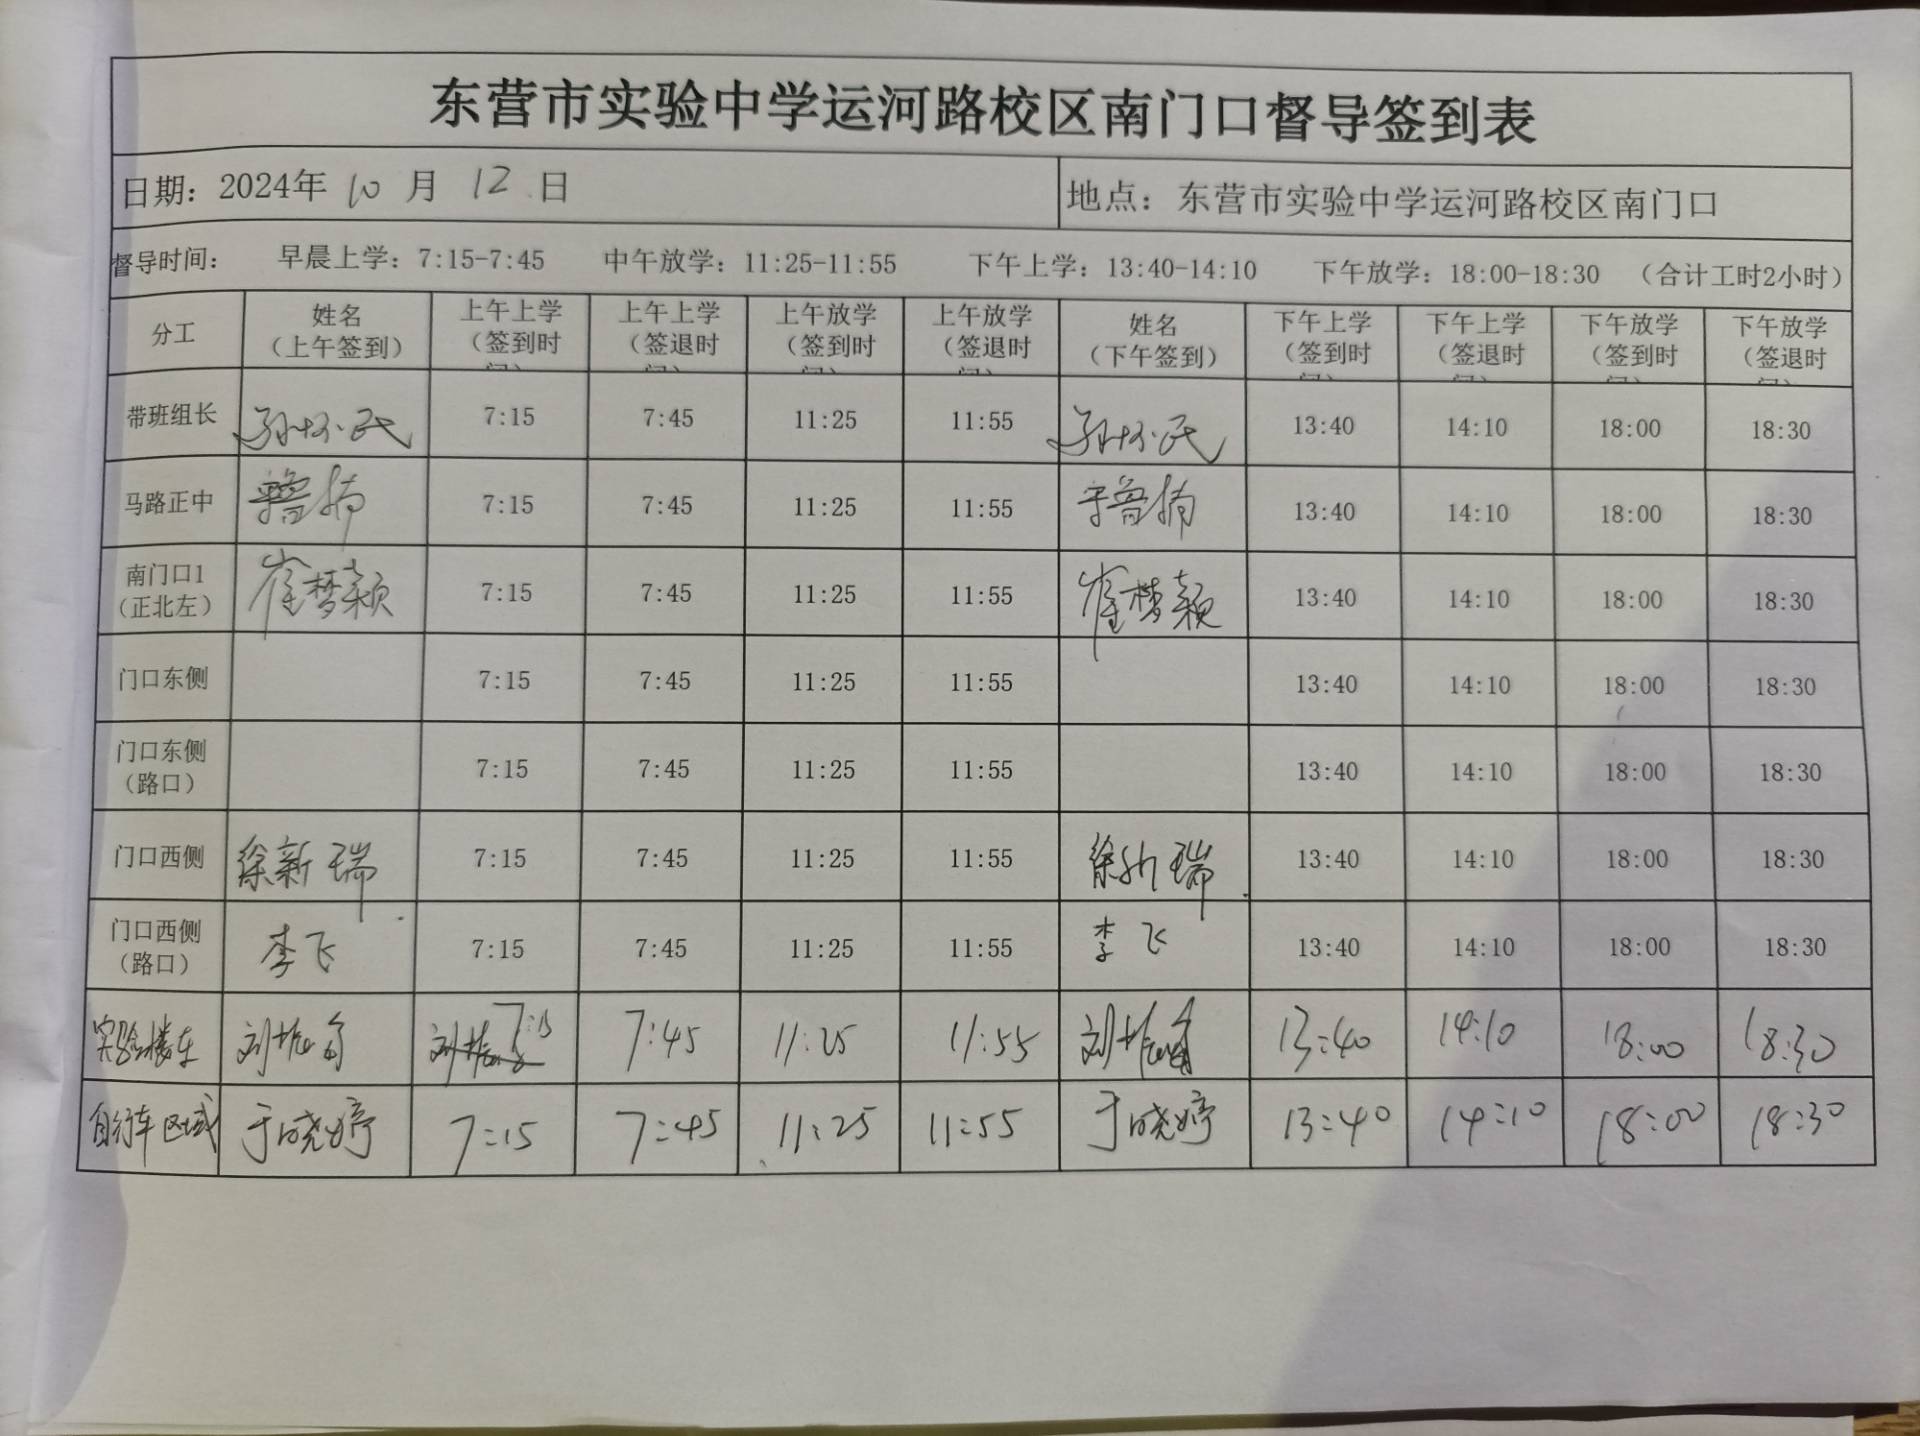 东营市实验中学运河路校区南门口督导签到表
日期：2024年 10 月 12 日 地点：东营市实验中学运河路校区南门口
督导时间： 早晨上学：7:15-7:45 中午放学：11:25-11:55 下午上学：13:40-14:10 下午放学：18:00-18:30 （合计工时2小时）
分工 姓名（上午签到） 上午上学（签到时间） 上午上学（签退时间） 上午放学（签到时间） 上午放学（签退时间） 姓名（下午签到） 下午上学（签到时间） 下午上学（签退时间） 下午放学（签到时间） 下午放学（签退时间）
带班组长 7:15 7:45 11:25 11:55 13:40 14:10 18:00 18:30
马路正中 7:15 7:45 11:25 11:55 13:40 14:10 18:00 18:30
南门口1（正北左） 崔梦颖 7:15 7:45 11:25 11:55 崔梦颖 13:40 14:10 18:00 18:30
门口东侧 7:15 7:45 11:25 11:55 13:40 14:10 18:00 18:30
门口东侧（路口） 7:15 7:45 11:25 11:55 13:40 14:10 18:00 18:30
门口西侧 徐新瑞 7:15 7:45 11:25 11:55 徐新瑞 13:40 14:10 18:00 18:30
门口西侧（路口） 李飞 7:15 7:45 11:25 11:55 李飞 13:40 14:10 18:00 18:30
实验楼东 刘振 7:15 7:45 11:25 11:55 刘振 13:40 14:10 18:00 18:30
自行车区域 于晓婷 7:15 7:45 11:25 11:55 于晓婷 13:40 14:10 18:00 18:30